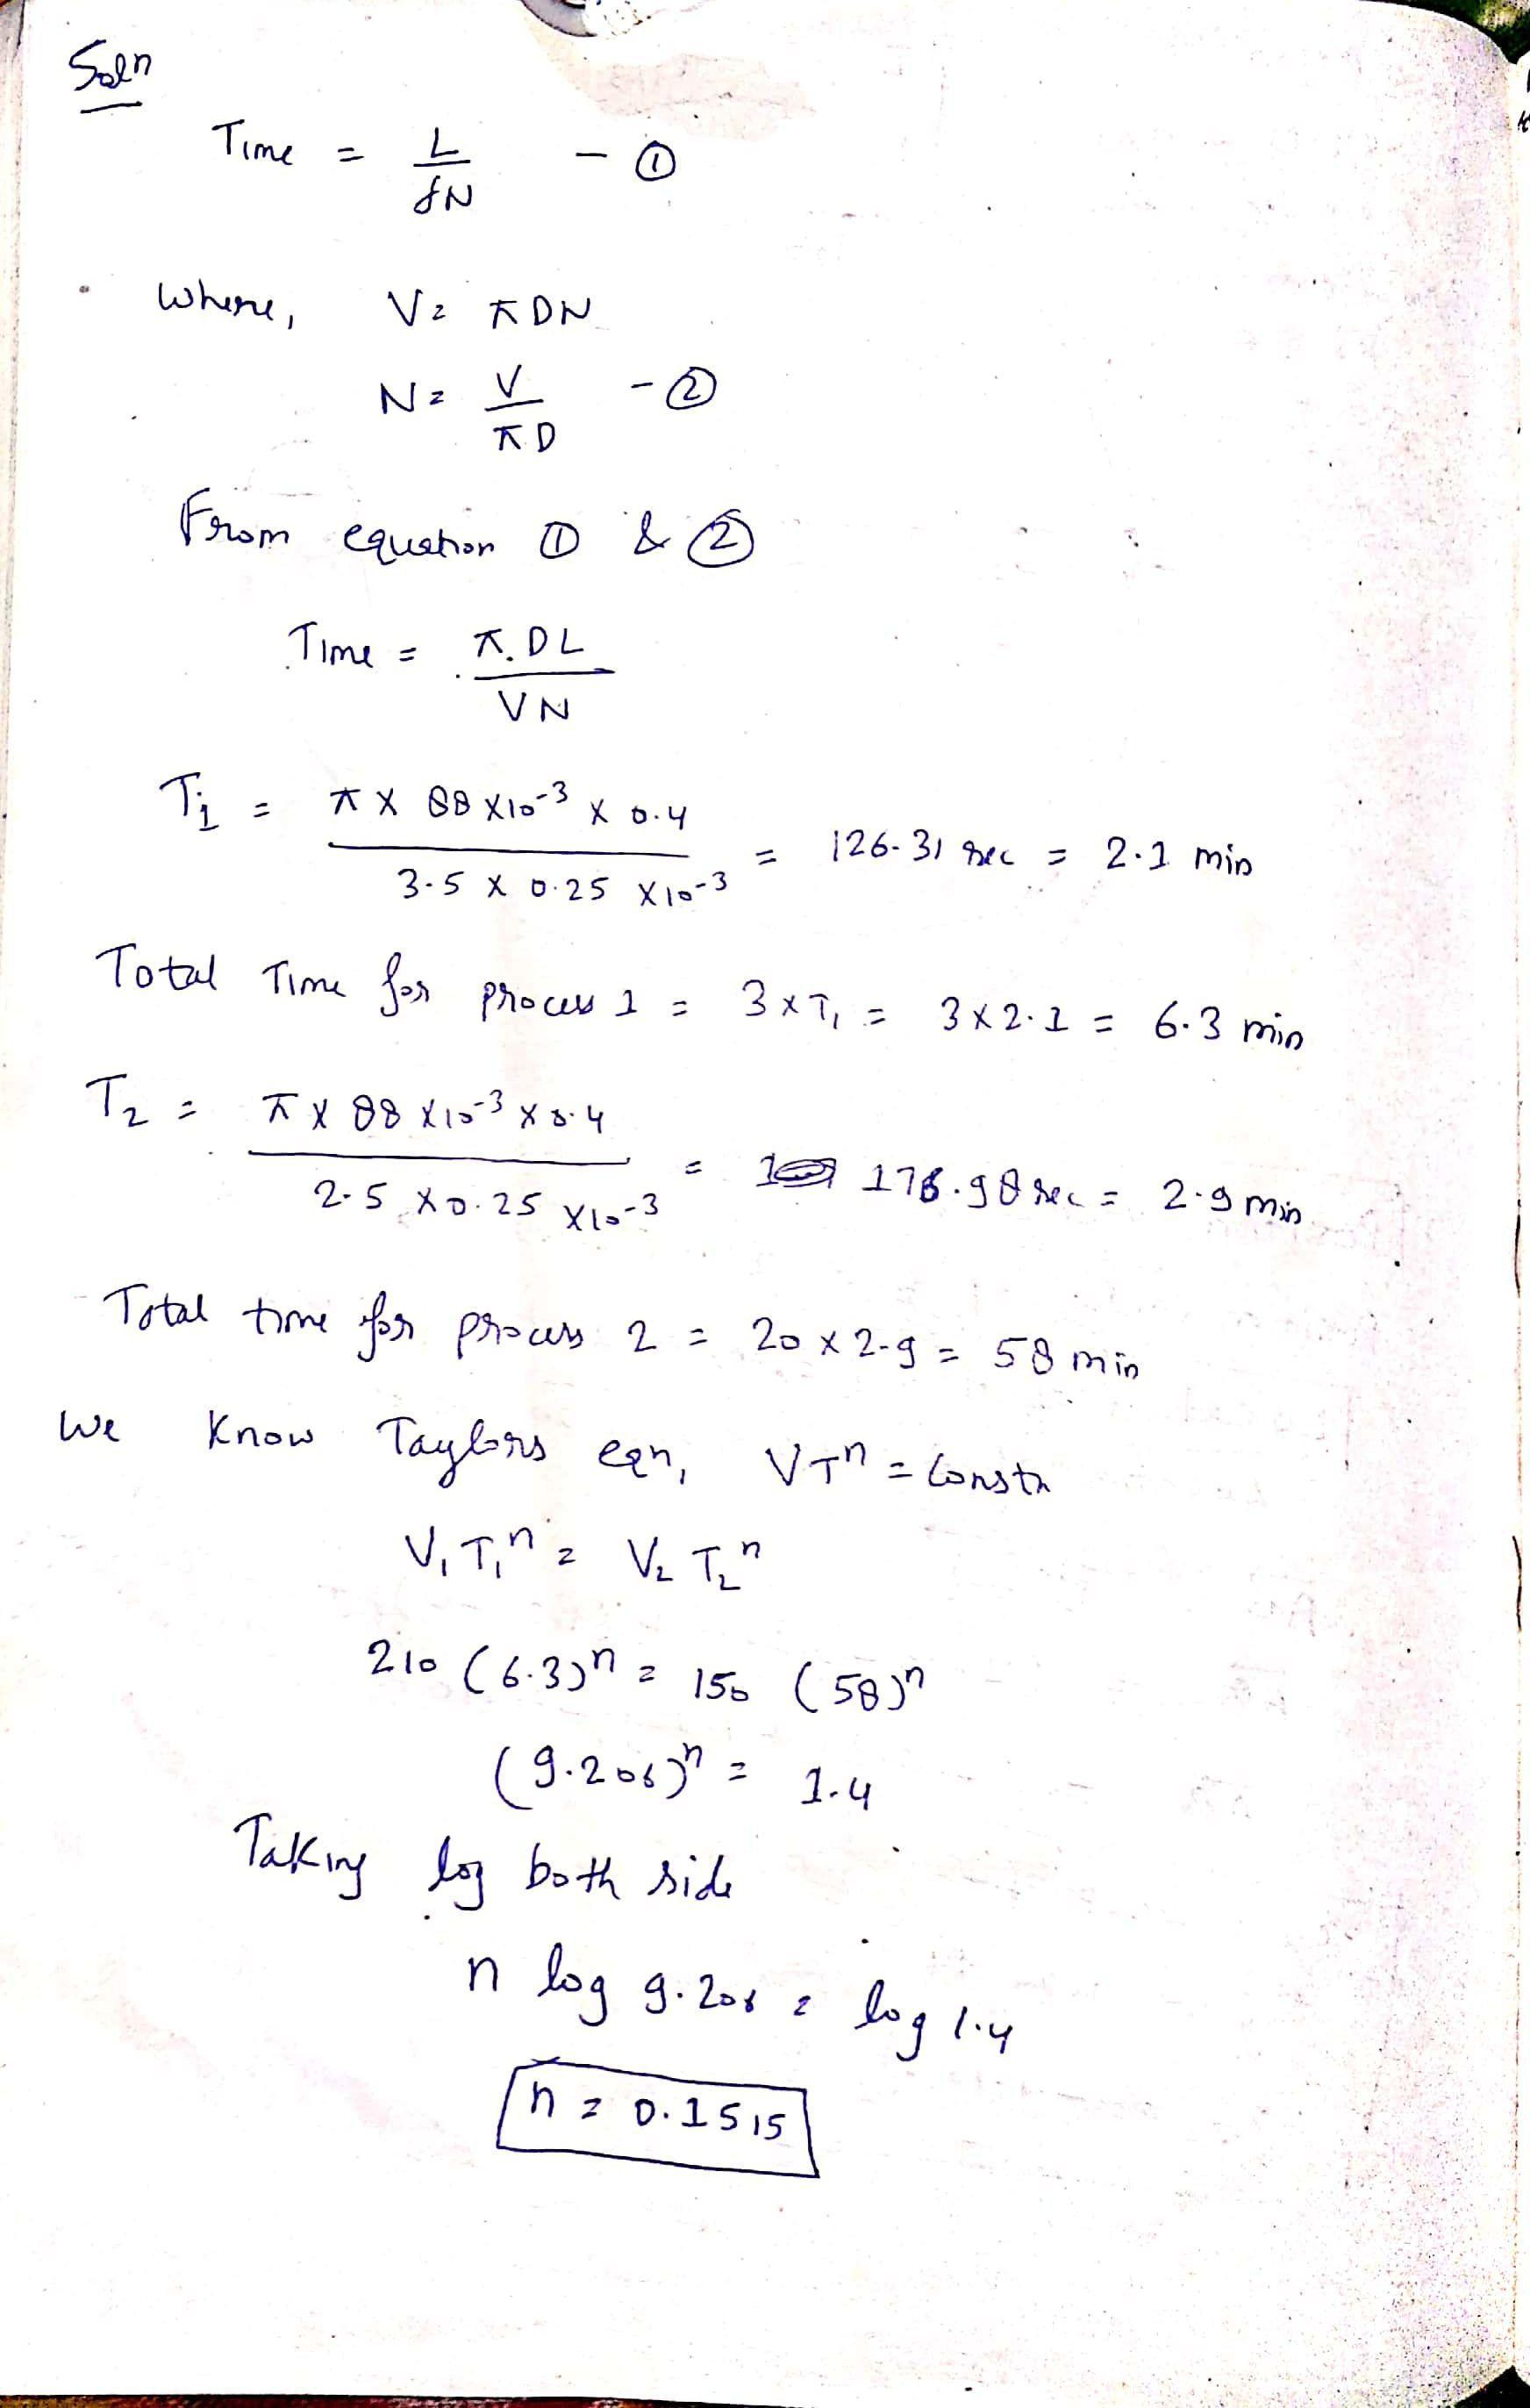 Soln
Time = L/fN - ①
Where, V = πDN
N = V/πD - ②
From equation ① & ②
Time = π.DL/VN
T1 = π × 88 × 10^-3 × 0.4 / 3.5 × 0.25 × 10^-3 = 126.31 sec = 2.1 min
Total Time for process 1 = 3 × T1 = 3 × 2.1 = 6.3 min
T2 = π × 88 × 10^-3 × 0.4 / 2.5 × 0.25 × 10^-3 = 176.98 sec = 2.9 min
Total time for process 2 = 20 × 2.9 = 58 min
We Know Taylors eqn, VT^n = Constn
V1 T1^n = V2 T2^n
210 (6.3)^n = 150 (58)^n
(9.206)^n = 1.4
Taking log both side
n log 9.206 = log 1.4
n = 0.1515